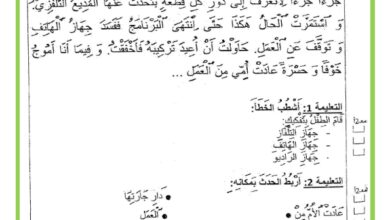 جُزْءًا جُزْءًا لِأَتَعَرَّفَ إِلَى دَوْرِ كُلِّ قِطْعَةٍ يَتَحَدَّثُ عَنْهَا الْمُذِيعُ التِّلْفَزِيُّ.
وَ اسْتَمَرَّتْ الْحَالُ هَكَذَا حَتَّى انْتَهَى الْبَرْنَامَجُ فَفَسَدَ جِهَازُ الْهَاتِفِ
وَ تَوَقَّفَ عَنِ الْعَمَلِ. حَاوَلْتُ أَنْ أُعِيدَ تَرْكِيبَهُ فَأَخْفَقْتُ. وَ فِيمَا أَنَا أَمُوجُ
خَوْفًا وَ حَسْرَةً عَادَتْ أُمِّي مِنَ الْعَمَلِ ...
التعليمة 1: أَشْطُبُ الخَطَأَ:
قَامَ الطِّفْلُ بِتَفْكِيكِ:
- جِهَازِ التِّلْفَازِ
- جِهَازِ الْهَاتِفِ
- جِهَازِ الرَّادِيُو
مع2أ
التعليمة 2: أَرْبُطُ الْحَدَثَ بِمَكَانِهِ:
• دَارِ جَارَتِهَا
عَادَتْ الْأُمُّ مِنْ •
• الْعَمَلِ
مع2أ